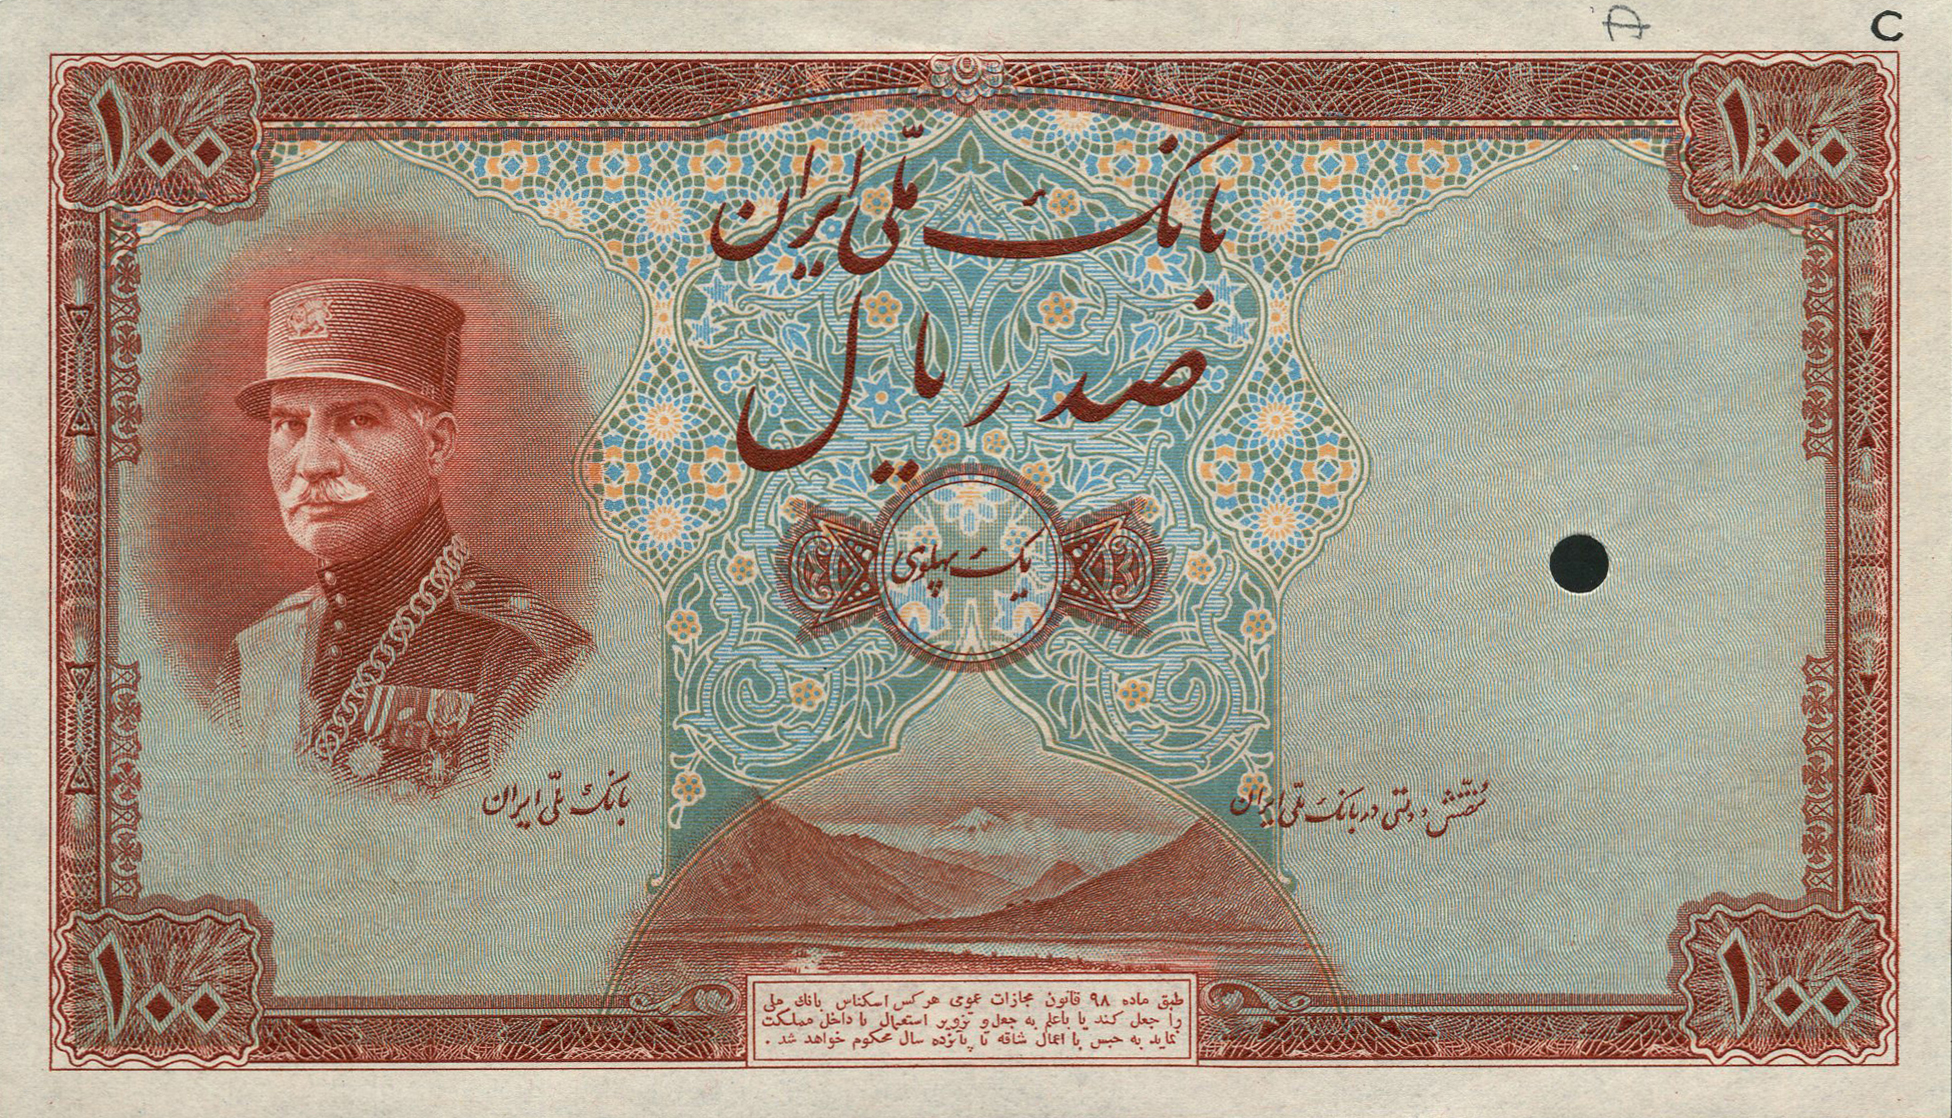 D
C
۱۰۰
۱۰۰
بانک ملّی ایران
صد ریال
یک پهلوی
بانک ملّی ایران
مُفتّش دولتی در بانک ملّی ایران
۱۰۰
۱۰۰
طبق ماده ۹۸ قانون مجازات عمومی هر کس اسکناس بانک ملی
را جعل کند یا با علم به جعل و تزویر استعمال یا داخل مملکت
نماید به حبس با اعمال شاقه تا پانزده سال محکوم خواهد شد .